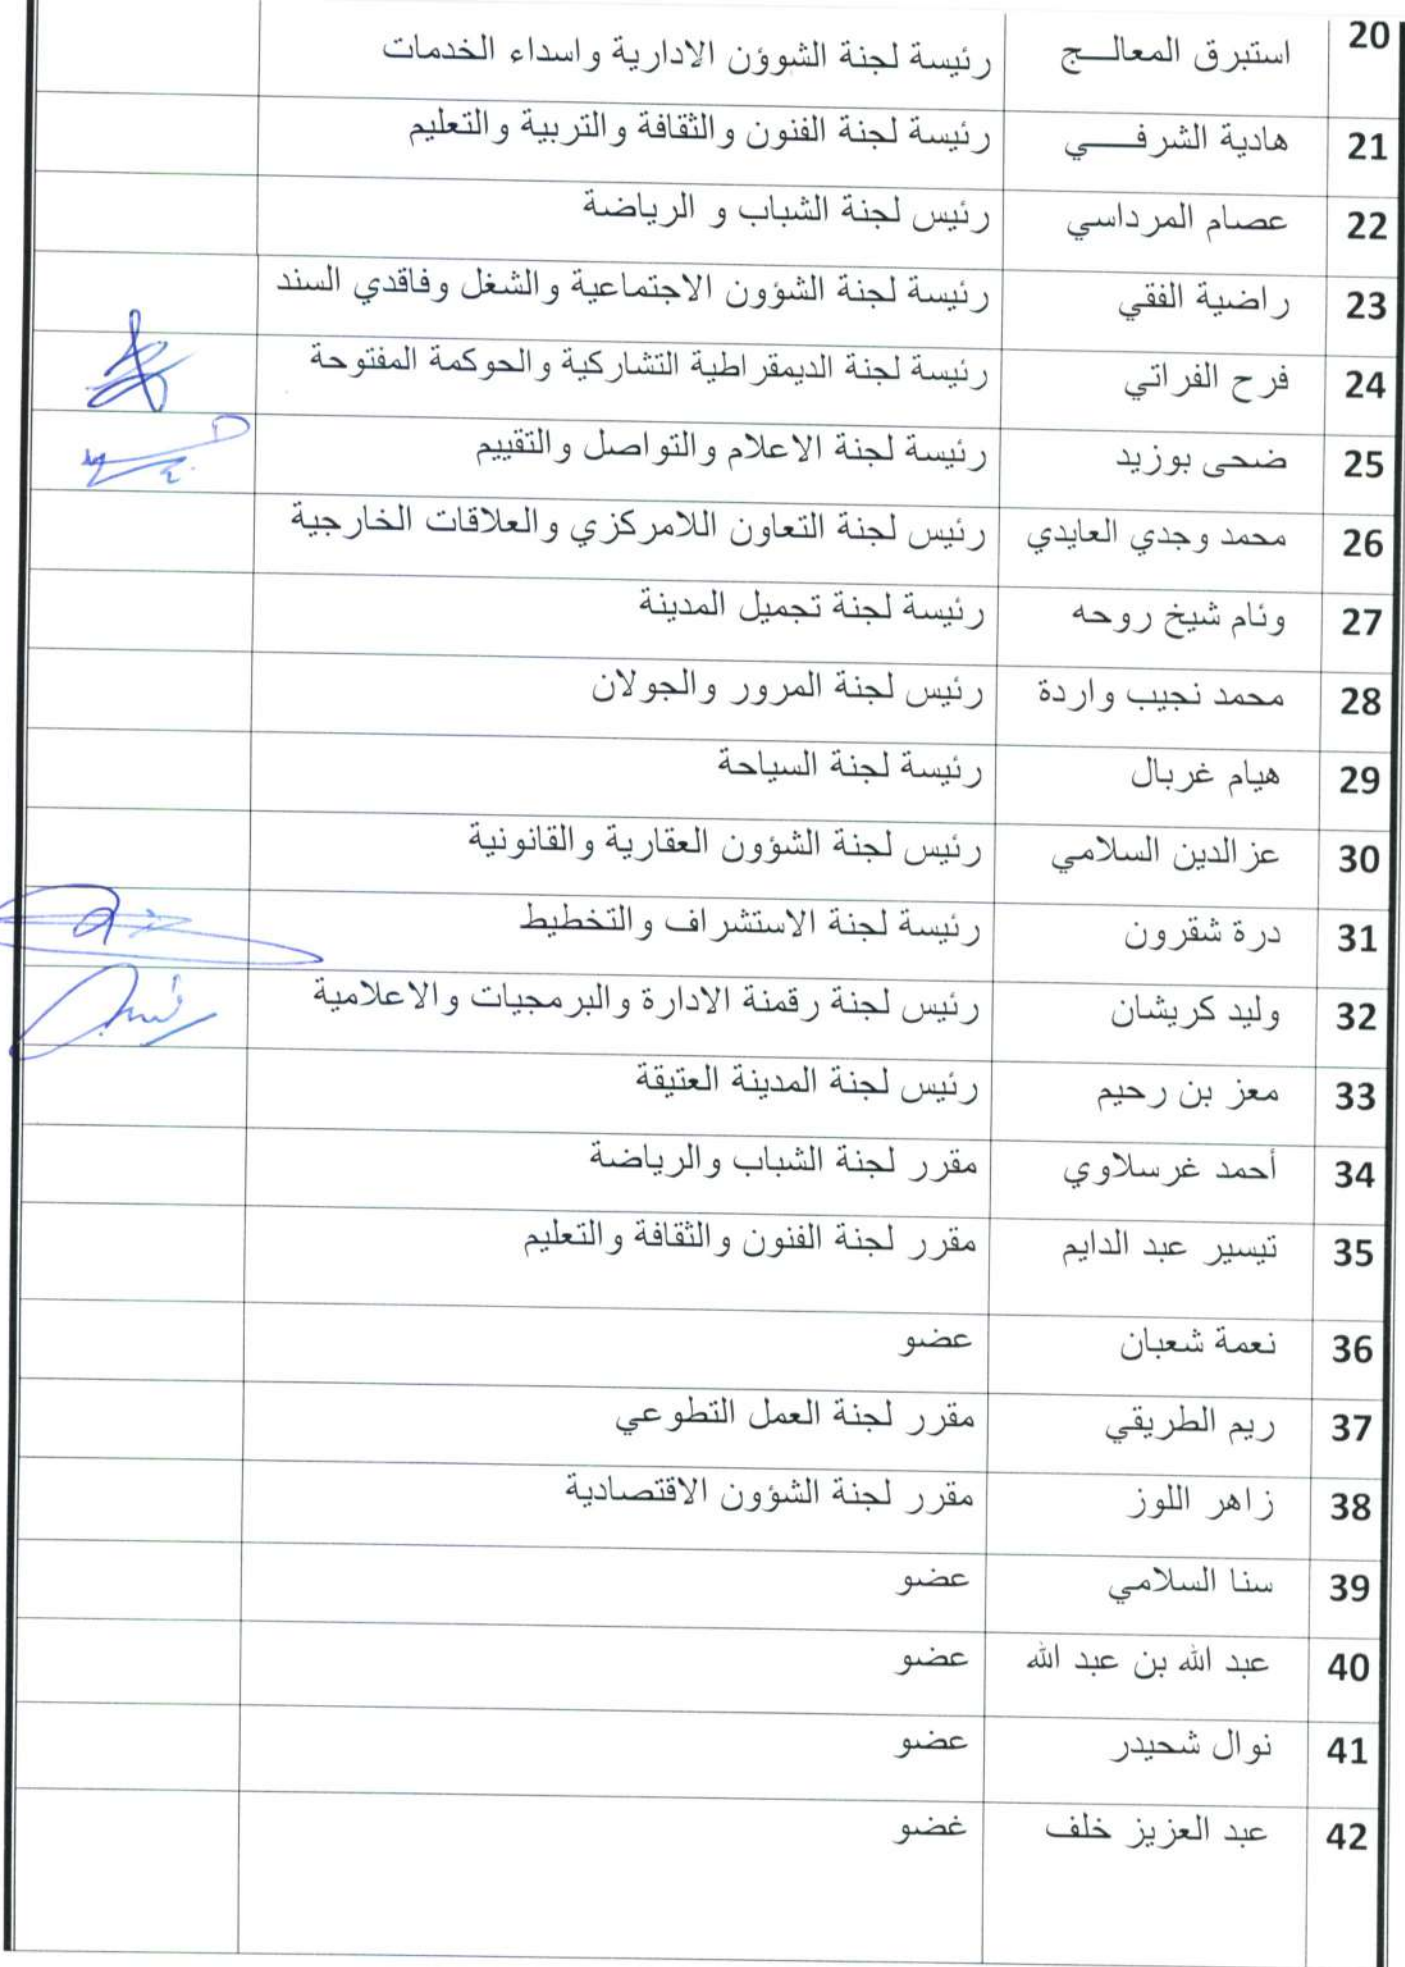 20 استبرق المعالـــج رئيسة لجنة الشوؤن الادارية واسداء الخدمات
21 هادية الشرفــــي رئيسة لجنة الفنون والثقافة والتربية والتعليم
22 عصام المرداسي رئيس لجنة الشباب و الرياضة
23 راضية الفقي رئيسة لجنة الشؤون الاجتماعية والشغل وفاقدي السند
24 فرح الفراتي رئيسة لجنة الديمقراطية التشاركية والحوكمة المفتوحة
25 ضحى بوزيد رئيسة لجنة الاعلام والتواصل والتقييم
26 محمد وجدي العايدي رئيس لجنة التعاون اللامركزي والعلاقات الخارجية
27 وئام شيخ روحه رئيسة لجنة تجميل المدينة
28 محمد نجيب واردة رئيس لجنة المرور والجولان
29 هيام غربال رئيسة لجنة السياحة
30 عزالدين السلامي رئيس لجنة الشؤون العقارية والقانونية
31 درة شقرون رئيسة لجنة الاستشراف والتخطيط
32 وليد كريشان رئيس لجنة رقمنة الادارة والبرمجيات والاعلامية
33 معز بن رحيم رئيس لجنة المدينة العتيقة
34 أحمد غرسلاوي مقرر لجنة الشباب والرياضة
35 تيسير عبد الدايم مقرر لجنة الفنون والثقافة والتعليم
36 نعمة شعبان عضو
37 ريم الطريقي مقرر لجنة العمل التطوعي
38 زاهر اللوز مقرر لجنة الشؤون الاقتصادية
39 سنا السلامي عضو
40 عبد الله بن عبد الله عضو
41 نوال شحيدر عضو
42 عبد العزيز خلف غضو